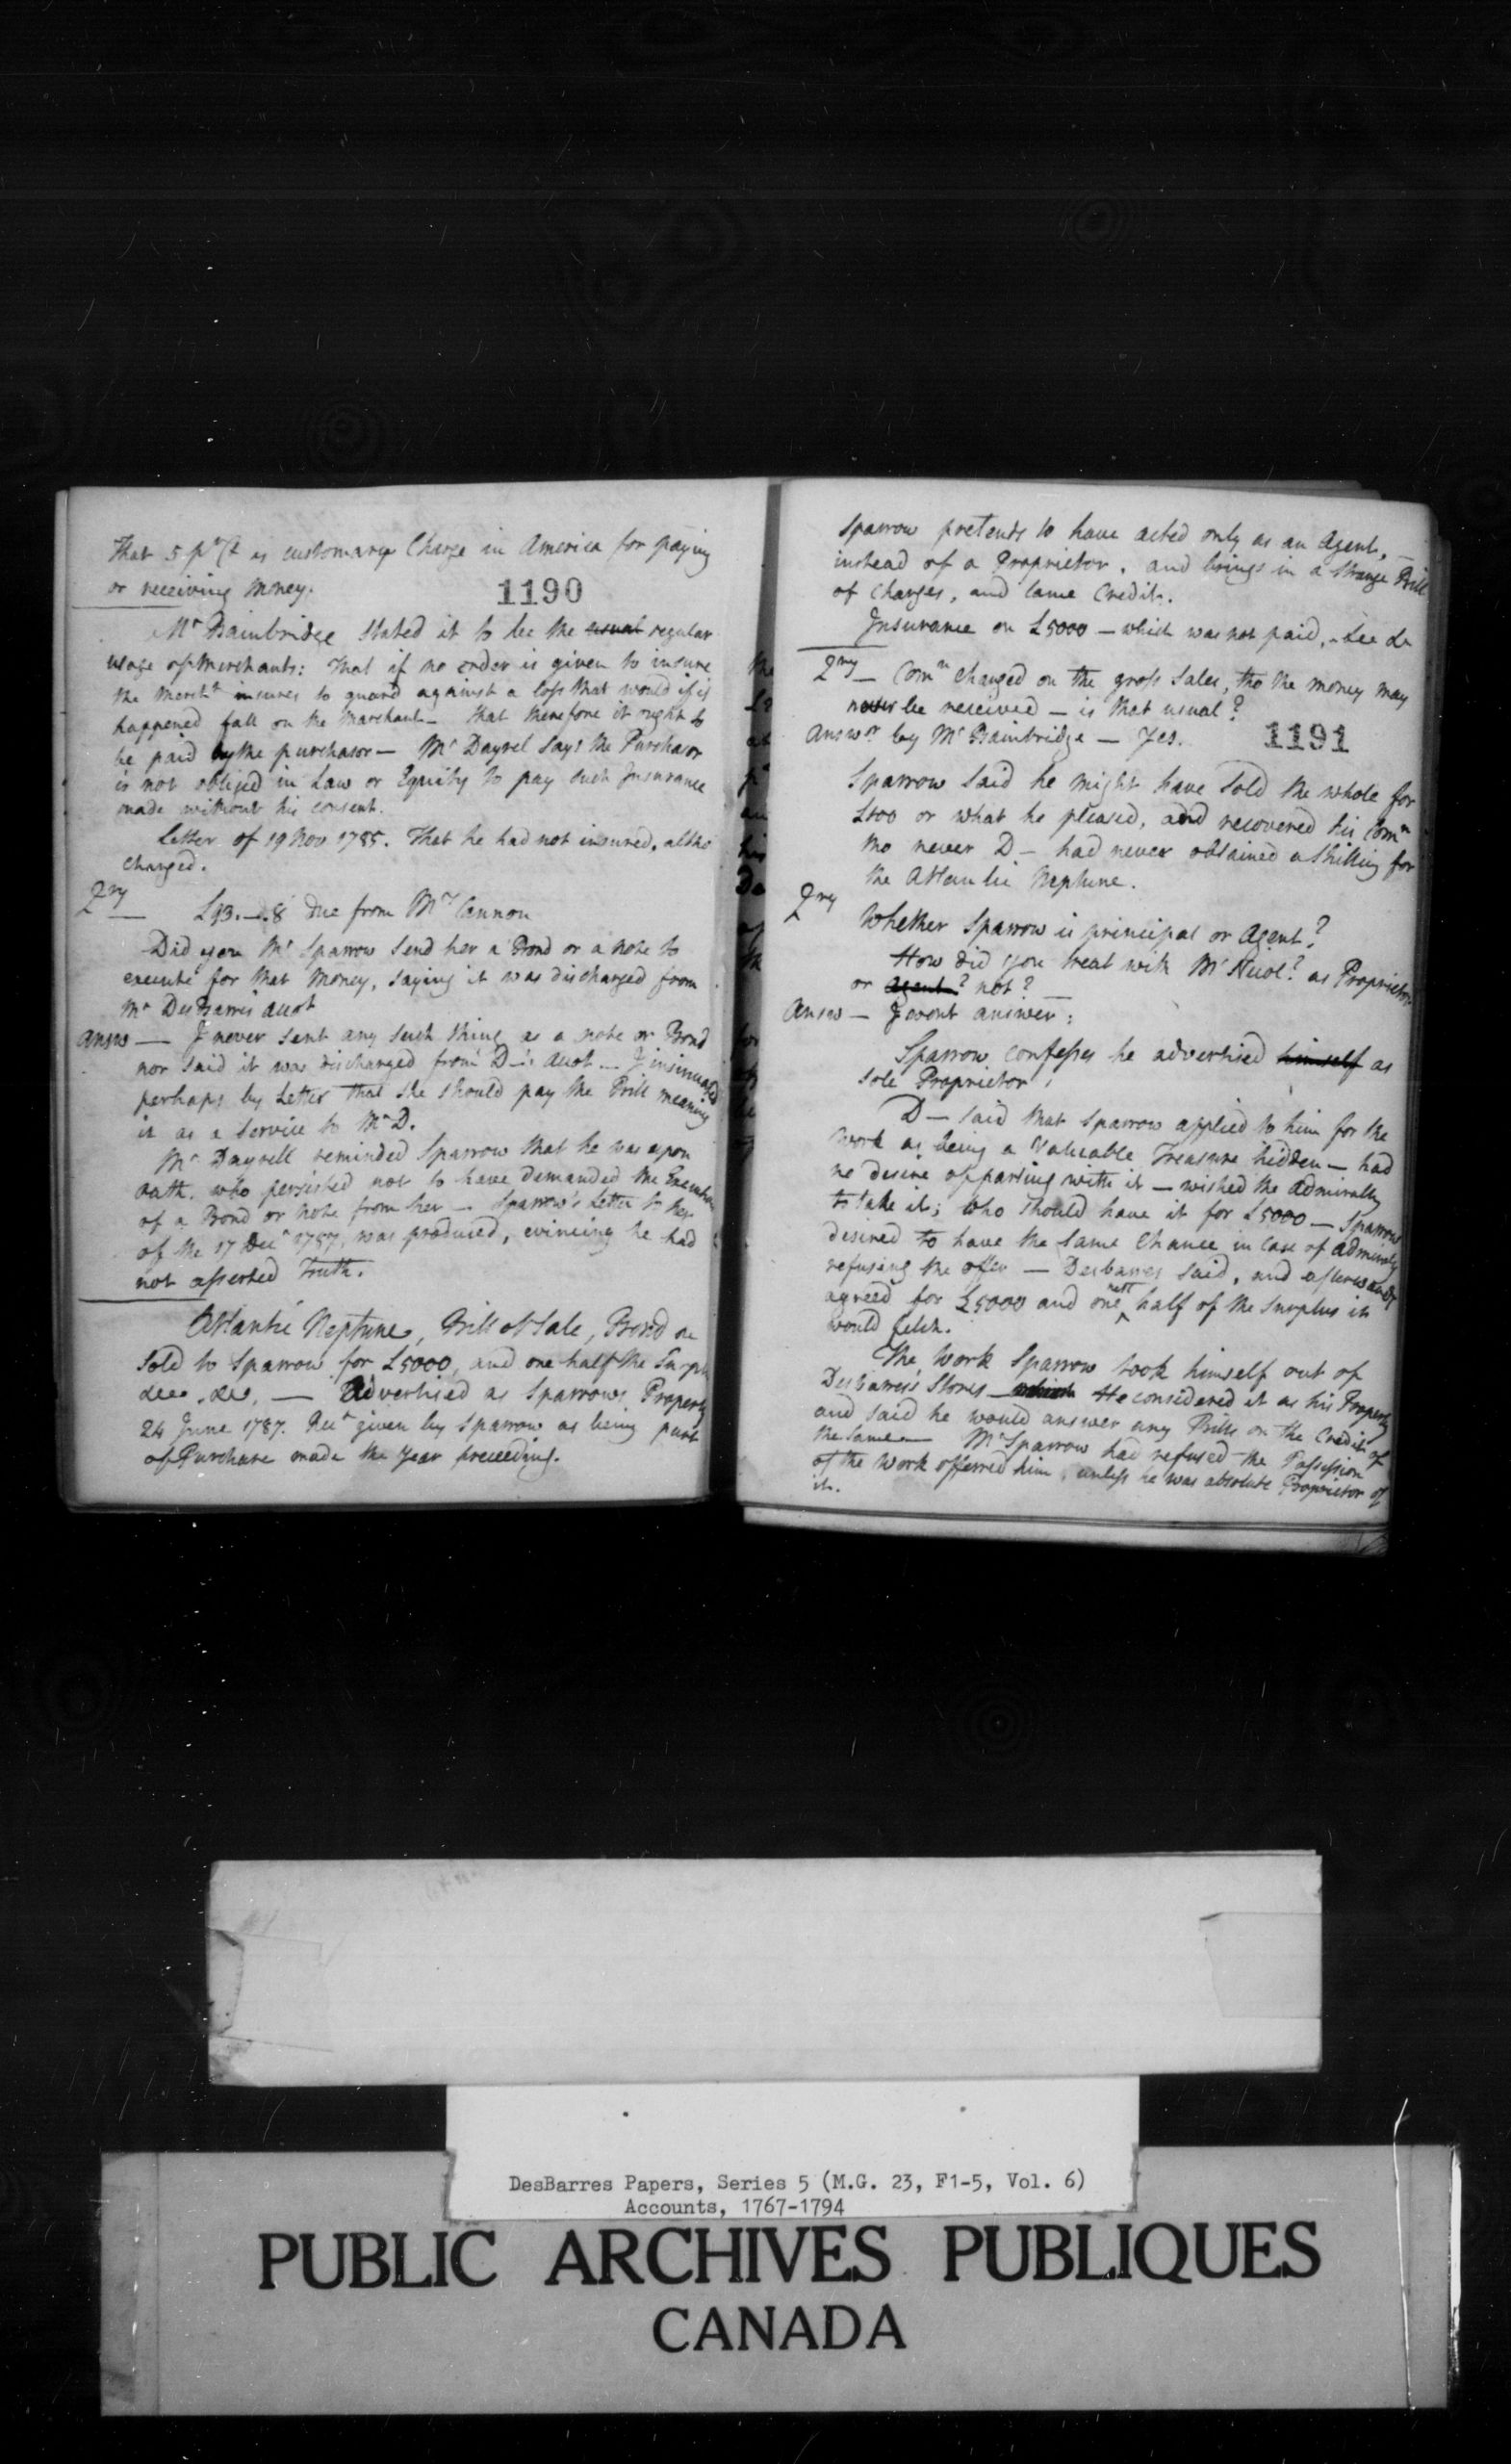 That 5 pr Ct is customary Charge in America for paying
or receiving Money.
1190
Mr Bainbridge stated it to be the usual regular
usage of Merchants: That if no order is given to insure
the Mercht insures to guard against a loss that would if it
happened fall on the Marchant — that therefore it ought to
be paid by the purchasor — Mr Dayrel Says the Purchasor
is not obliged in Law or Equity to pay such Insurance
made without his consent.
Letter of 19 Nov 1785. That he had not insured, altho
charged.
Qry £93.—.8 due from Mrs Cannon
Did you Mr Sparrow send her a Bond or a note to
execute for that Money, saying it was discharged from
Mr DesBarres Acct
Answ — I never sent any such thing as a note or Bond
nor said it was discharged from D—'s Acct — I insinuated
perhaps by Letter that she should pay the Bill meaning
it as a Service to Mr D.
Mr Dayrell reminded Sparrow that he was upon
oath, who persisted not to have demanded the Execution
of a Bond or Note from her — Sparrow's Letter to her
of the 17 Decr 1787, was produced, evincing he had
not asserted Truth.
Atlantic Neptune, Bill of Sale, Bond &c
Sold to Sparrow for £5000, and one half the Surpls
&c &c — Advertised as Sparrows Property
24 June 1787. Rect given by Sparrow as being part
of Purchase made the Year preceeding.
Sparrow pretends to have acted only as an Agent, —
instead of a Proprietor, and brings in a strange Bill
of Charges, and lame Credit.
Insurance on £5000 — which was not paid, — see &c
Qry — Comn charged on the gross Sales, tho the money may
never be received — is that usual?
Answr by Mr Bainbridge — Yes.
1191
Sparrow said he might have sold the whole for
£100 or what he pleased, and recovered his Comn
tho never D— had never obtained a shilling for
the Atlantic Neptune.
Qry Whether Sparrow is principal or Agent?
How did you treat with Mr Nicol? as Proprietor
or Agent? not?
Answ — I wont answer;
Sparrow confesses he advertised himself as
sole Proprietor;
D— said that Sparrow applied to him for the
Work as being a Valuable Treasure hidden — had
no desire of parting with it — wished the Admiralty
to take it; who should have it for £5000 — Sparrow
desired to have the same Chance in case of Admiralty
refusing the offer — Desbarres said, and afterwards
agreed for £5000 and one nett half of the Surplus it
would fetch.
The Work Sparrow took himself out of
Desbarres's Stores — which He considered it as his Property
and said he would answer any Bills on the Credit of
the same — Mr Sparrow had refused the Possession
of the Work offerred him, unless he was absolute Proprietor of
it.
DesBarres Papers, Series 5 (M.G. 23, F1-5, Vol. 6)
Accounts, 1767-1794
PUBLIC ARCHIVES PUBLIQUES
CANADA